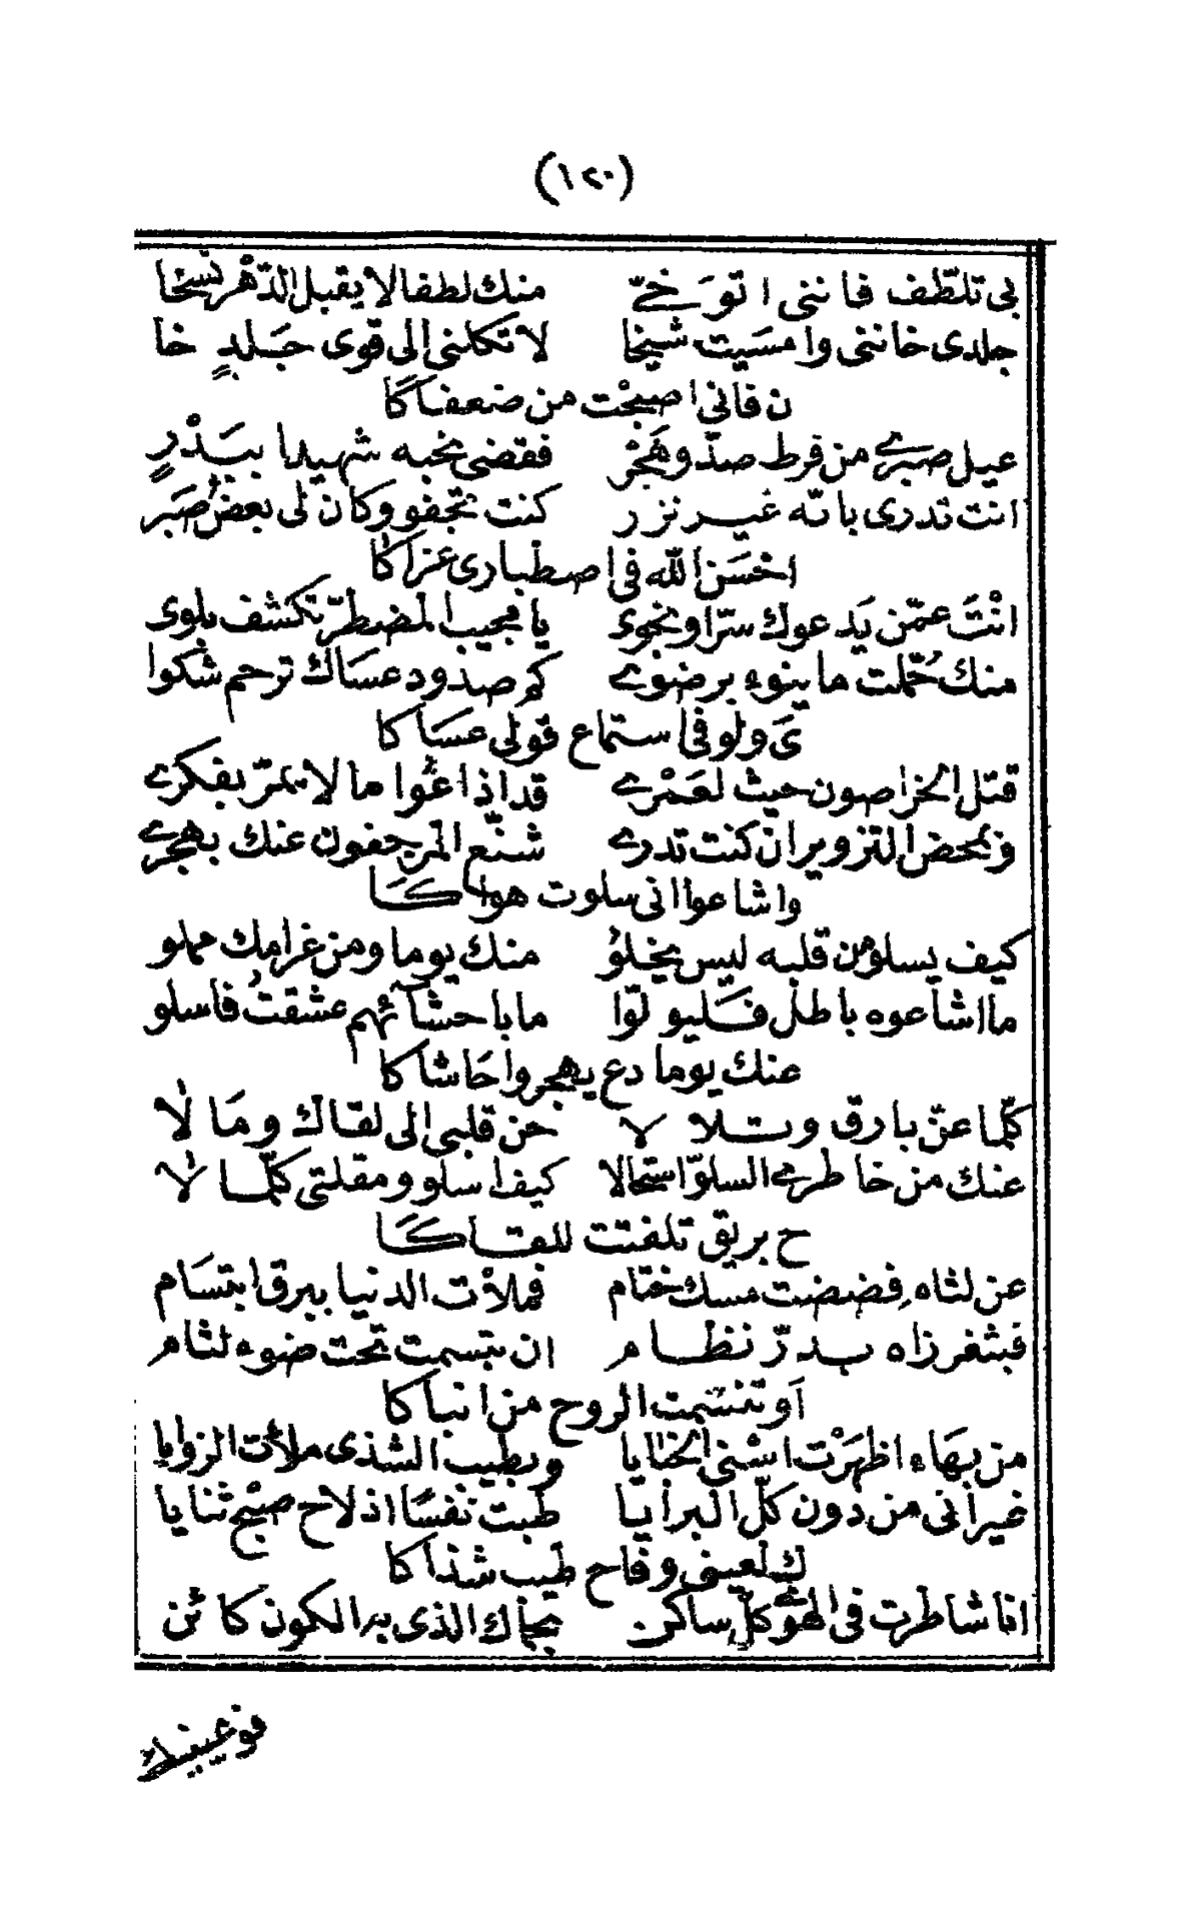 (١٢٠)
بى تلطّف فاننى اتوَخّى منك لطفا لا يقبل الدّهْر نسْخا
جلدى خاننى وامسَيت شيخا لا تكلنى الى قوى جَلدٍ خا
ن فانى اصبحْت من ضعفاكَا
عيل صبرے من فرط صدّ وهَجْر فقضى نحبه شهيدا ببَدْرٍ
انت تدرى بانّه غير نزر كنت تجفو وكان لى بعضُ صَبر
احْسَن الله فى اصطبارى عزاكا
انْتَ عمّن يَدعوك سرّا ونجوى يا مجيب المضطرّ تكشف بلوى
منك حُمّلت ما ينوء برضوے كم صدود عسَاك ترحم شكوا
ىَ ولو فى استماع قولى عسَاكا
قتل الخراصون حيث لعَمْرے قد اذاعُوا ما لا يمرّ بفكرے
فبمحض التزوير ان كنت تدرے شنّع المرجفون عنك بهجرے
واشاعوا انى سلوت هواكَا
كيف يسلو من قلبه ليس يخلوُ منك يوما ومن غرامك مملو
ما اشاعوه باطل فَليولوّا ما باحشآئهم عشقتُ فاسلو
عنك يوما دع يهجروا حَاشاكا
كلّما عنّ بارق وتلالا حن قلبى الى لقاك ومَالا
عنك من خاطرے السلوّ استحالا كيف اسلو ومقلتى كلّما لا
ح بريق تلفتت للقاكَا
عن لثاه فضضت مسك ختام فملأت الدنيا ببرق ابتسَام
فبثغر زاه بدرّ نظام ان تبسمت تحت ضوء لثام
اَو تنسّمت الروح من انباكا
من بهاء اظهَرْت اسْنى الخبايا وبطيب الشذى ملأت الزوايا
غير انى من دون كلّ البرايَا طبت نفسًا اذ لاح صبْح ثنايا
ك لعينى وفاح طيب شذاكا
انا شاطرت فى الهوى كلّ ساكن بحماك الذى به الكون كائن
فوعينيك